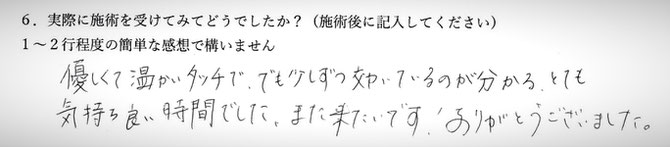 6．実際に施術を受けてみてどうでしたか？（施術後に記入してください）
1～2行程度の簡単な感想で構いません
優しくて温かいタッチで、でも少しずつ効いているのが分かる、とても
気持ち良い時間でした。また来たいです！ありがとうございました。